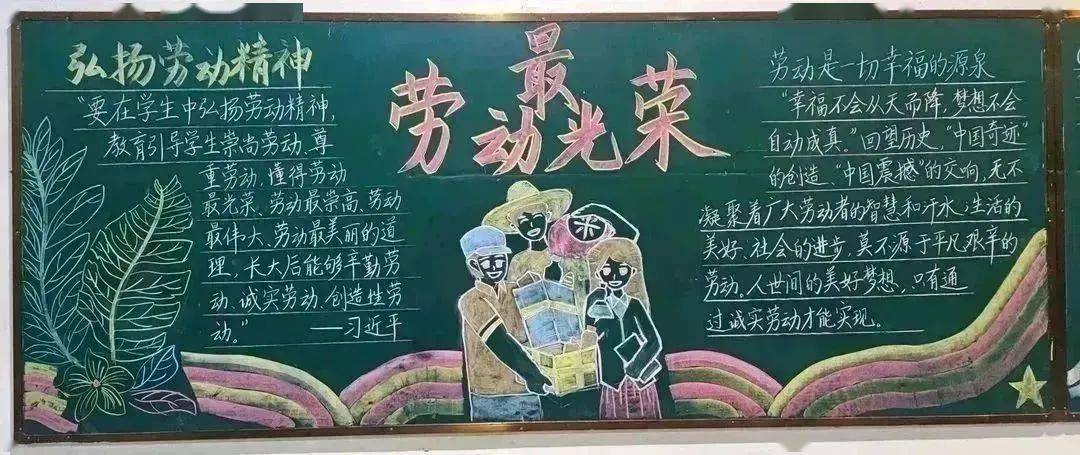 弘扬劳动精神
“要在学生中弘扬劳动精神，
教育引导学生崇尚劳动、尊
重劳动，懂得劳动
最光荣、劳动最崇高、劳动
最伟大、劳动最美丽的道
理，长大后能够辛勤劳
动、诚实劳动、创造性劳
动。” ——习近平
劳动最光荣
米
劳动是一切幸福的源泉
“幸福不会从天而降，梦想不会
自动成真。”回望历史，“中国奇迹”
的创造、“中国震撼”的交响，无不
凝聚着广大劳动者的智慧和汗水；生活的
美好、社会的进步，莫不源于平凡艰辛的
劳动。人世间的美好梦想，只有通
过诚实劳动才能实现。